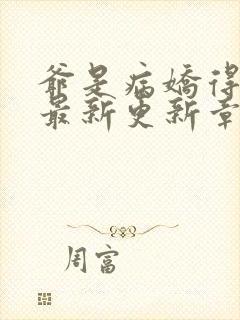 爺是病嬌得
最新更新章
周富